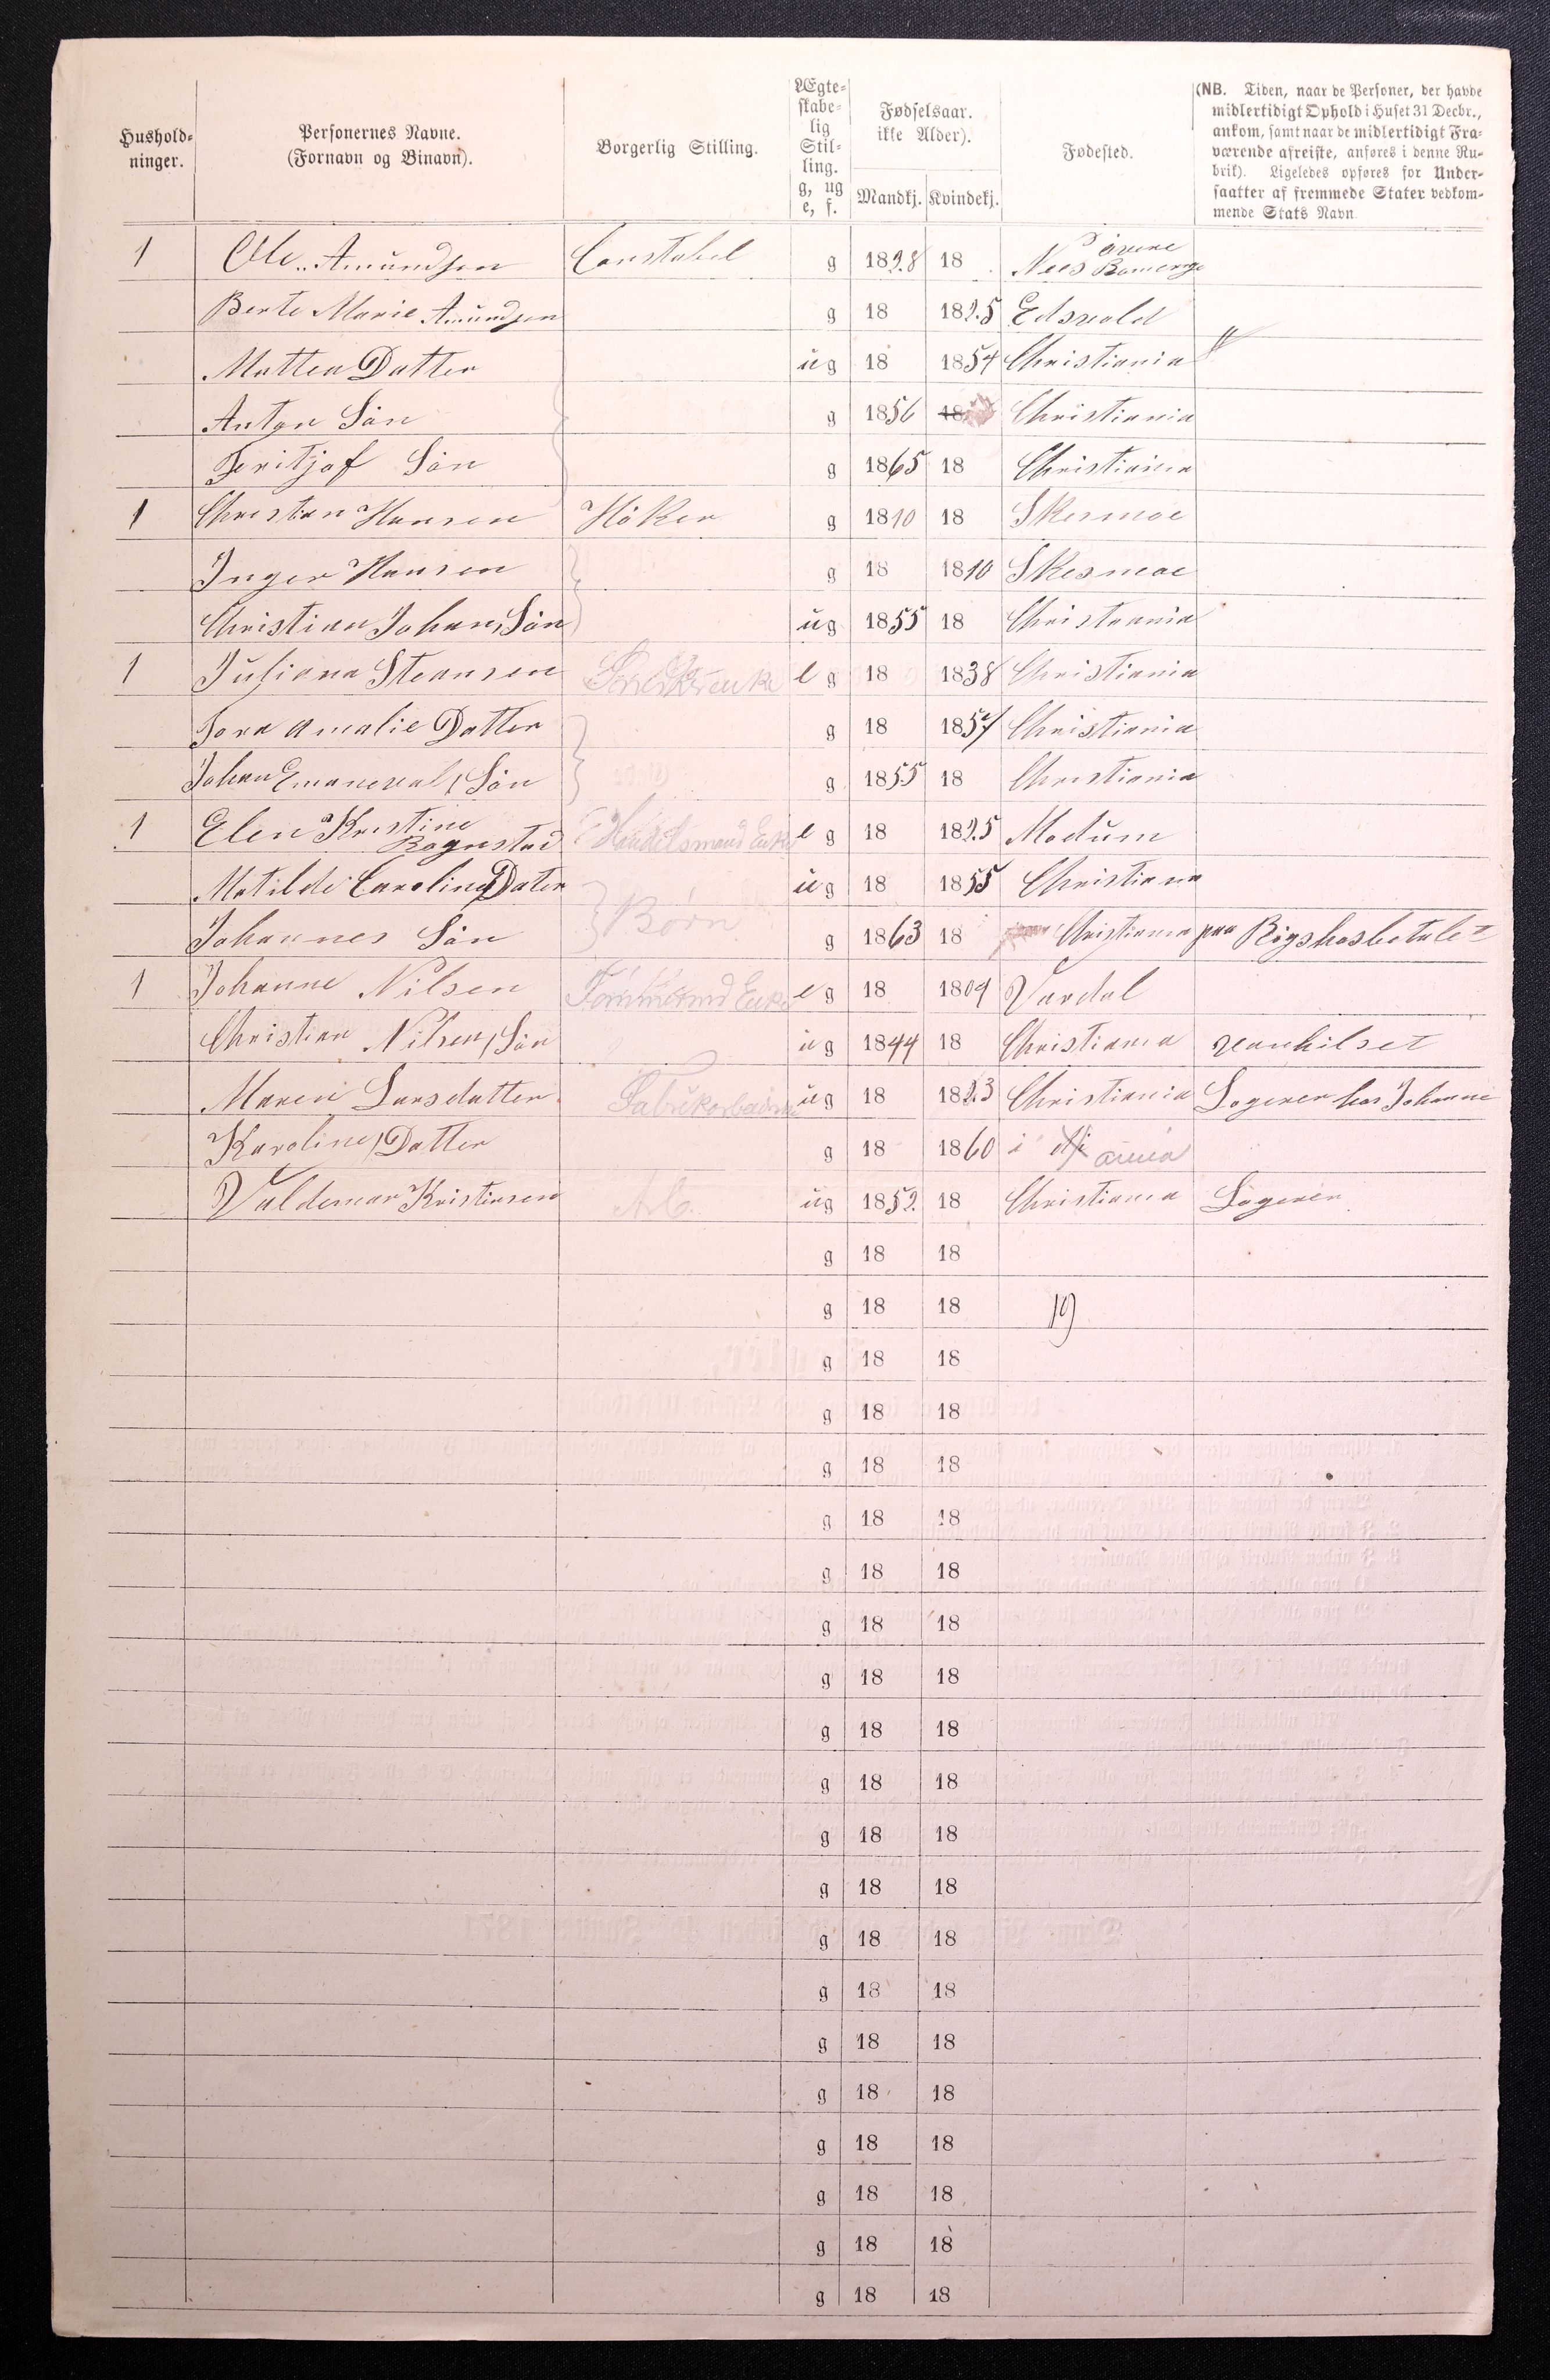 Hushold-
ninger.
Personernes Navne.
(Fornavn og Binavn).
Borgerlig Stilling.
Ægte-
skabe-
lig
Stil-
ling.
g, ug
e, f.
Fødselsaar.
ikke Alder).
Mandkj. Kvindekj.
Fødested.
(NB. Tiden, naar de Personer, der havde
midlertidigt Ophold i Huset 31 Decbr.,
ankom, samt naar de midlertidigt Fra-
værende afreiste, anføres i denne Ru-
brik). Ligeledes opføres for Under-
saatter af fremmede Stater vedkom-
mende Stats Navn.
1 Ole Amundsen Constabel g 1828 18 Nees øvre Romerige
Berte Marie Amundsen g 18 1825 Edsvold
Mattea Datter ug 18 1854 Christiania
Anton Sön g 1856 18 Christiania
Feritjof Sön g 1865 18 Christiania
1 Christian Hansen Höker g 1810 18 Skesmoe
Inger Hansen g 18 1810 Skesmoe
Christian Johan, Sön ug 1855 18 Christiania
1 Juliana Steansen e g 18 1838 Christiania
Tora Amalie Datter g 18 1857 Christiania
Johan Emanuel, Sön g 1855 18 Christiania
1 Elen Kristine Rognstad Handelsmand Enke e g 18 1825 Modum
Matilde Caroline Dater ug 18 1855 Christiana
Johannes Sön Børn g 1863 18 Christiania paa Rigshosbetalet
1 Johanne Nilsen Tømmermd Enke e g 18 1809 Vardal
Christian Nilsen, Sön ug 1844 18 Christiania vanhilset
Maren Larsdatter Fabrikarbeiderske ug 18 1823 Christiania Logerer hos Johanne
Karoline, Datter g 18 1860 i Xania
Valdemar Kristiansen Arb. ug 1852 18 Christiania Logerer
g 18 18
g 18 18 19
g 18 18
g 18 18
g 18 18
g 18 18
g 18 18
g 18 18
g 18 18
g 18 18
g 18 18
g 18 18
g 18 18
g 18 18
g 18 18
g 18 18
g 18 18
g 18 18
g 18 18
g 18 18
g 18 18